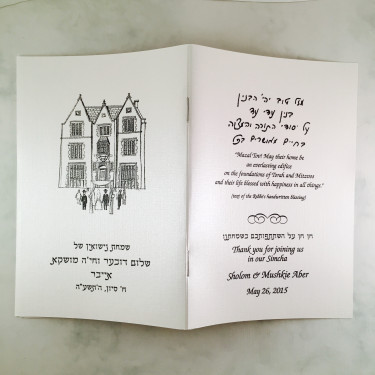 שמחת נישואין של
שלום דובער וחי'ה מושקא
אייבר
ח' סיון, ה'תשע"ה
מזל טוב יהי' הבנין
בנין עדי עד
על יסודי התורה והמצוה
בחיים מאושרים בכל
"Mazal Tov! May their home be
an everlasting edifice
on the foundations of Torah and Mitzvos
and their life blessed with happiness in all things."
(text of the Rebbe's handwritten blessing)
חן חן על השתתפותכם בשמחתינו
Thank you for joining us
in our Simcha
Sholom & Mushkie Aber
May 26, 2015